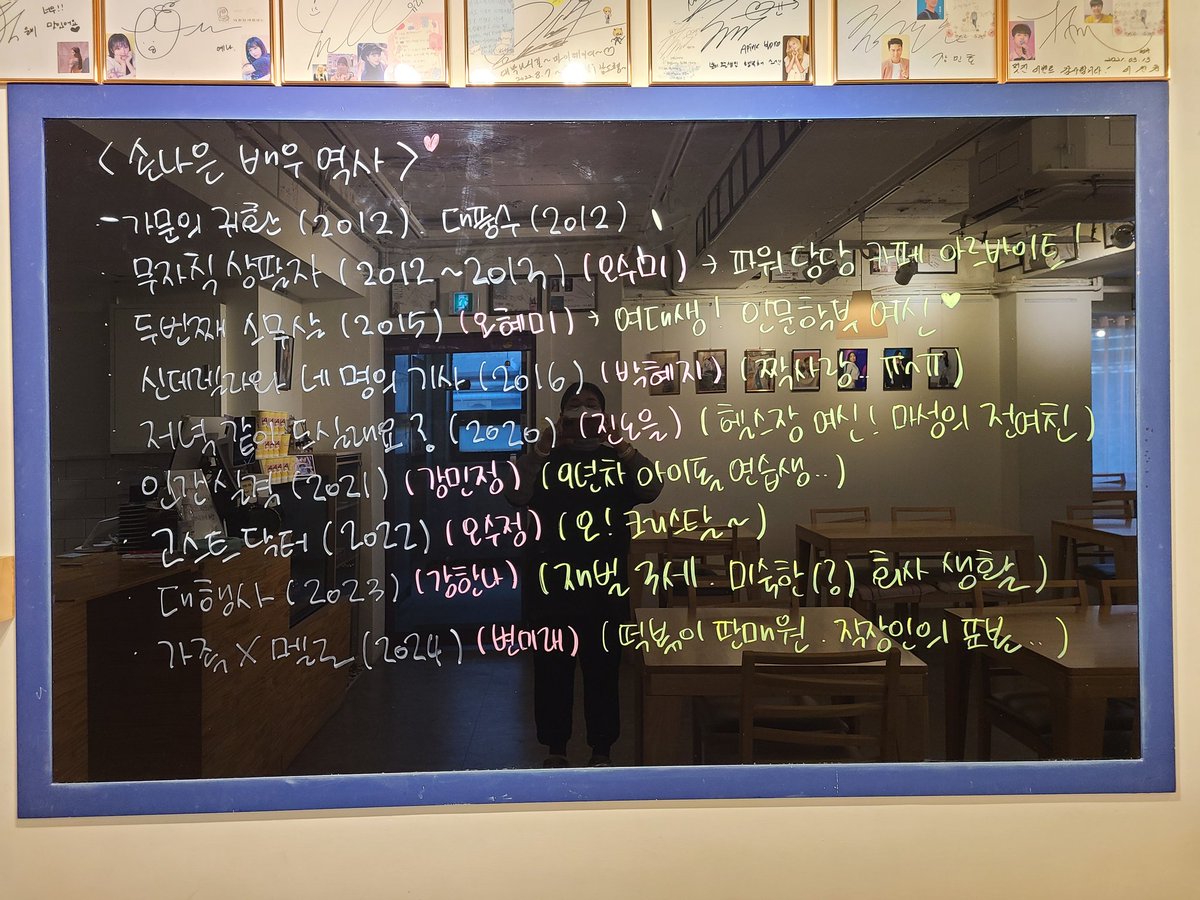 예나
Apink 초롱
2021. 03. 13
<손나은 배우 역사>
- 가문의 귀환 (2012) 대풍수 (2012)
· 무자식 상팔자 (2012~2013) (오수미) → 파워 당당 카페 아르바이트!
· 두번째 스무살 (2015) (오혜미) → 여대생! 인문학부 여신
· 신데렐라와 네 명의 기사 (2016) (박혜지) (짝사랑.. ㅠㅅㅠ)
· 저녁 같이 드실래요? (2020) (진노을) (헬스장 여신! 매성의 전여친)
· 인간실격 (2021) (강민정) (9년차 아이돌 연습생..)
· 고스트 닥터 (2022) (오수정) (오! 크리스탈~)
· 대행사 (2023) (강한나) (재벌 3세. 미숙한(?) 회사 생활)
· 가족 X 멜로 (2024) (변미래) (떡볶이 판매원. 직장인의 표본..)